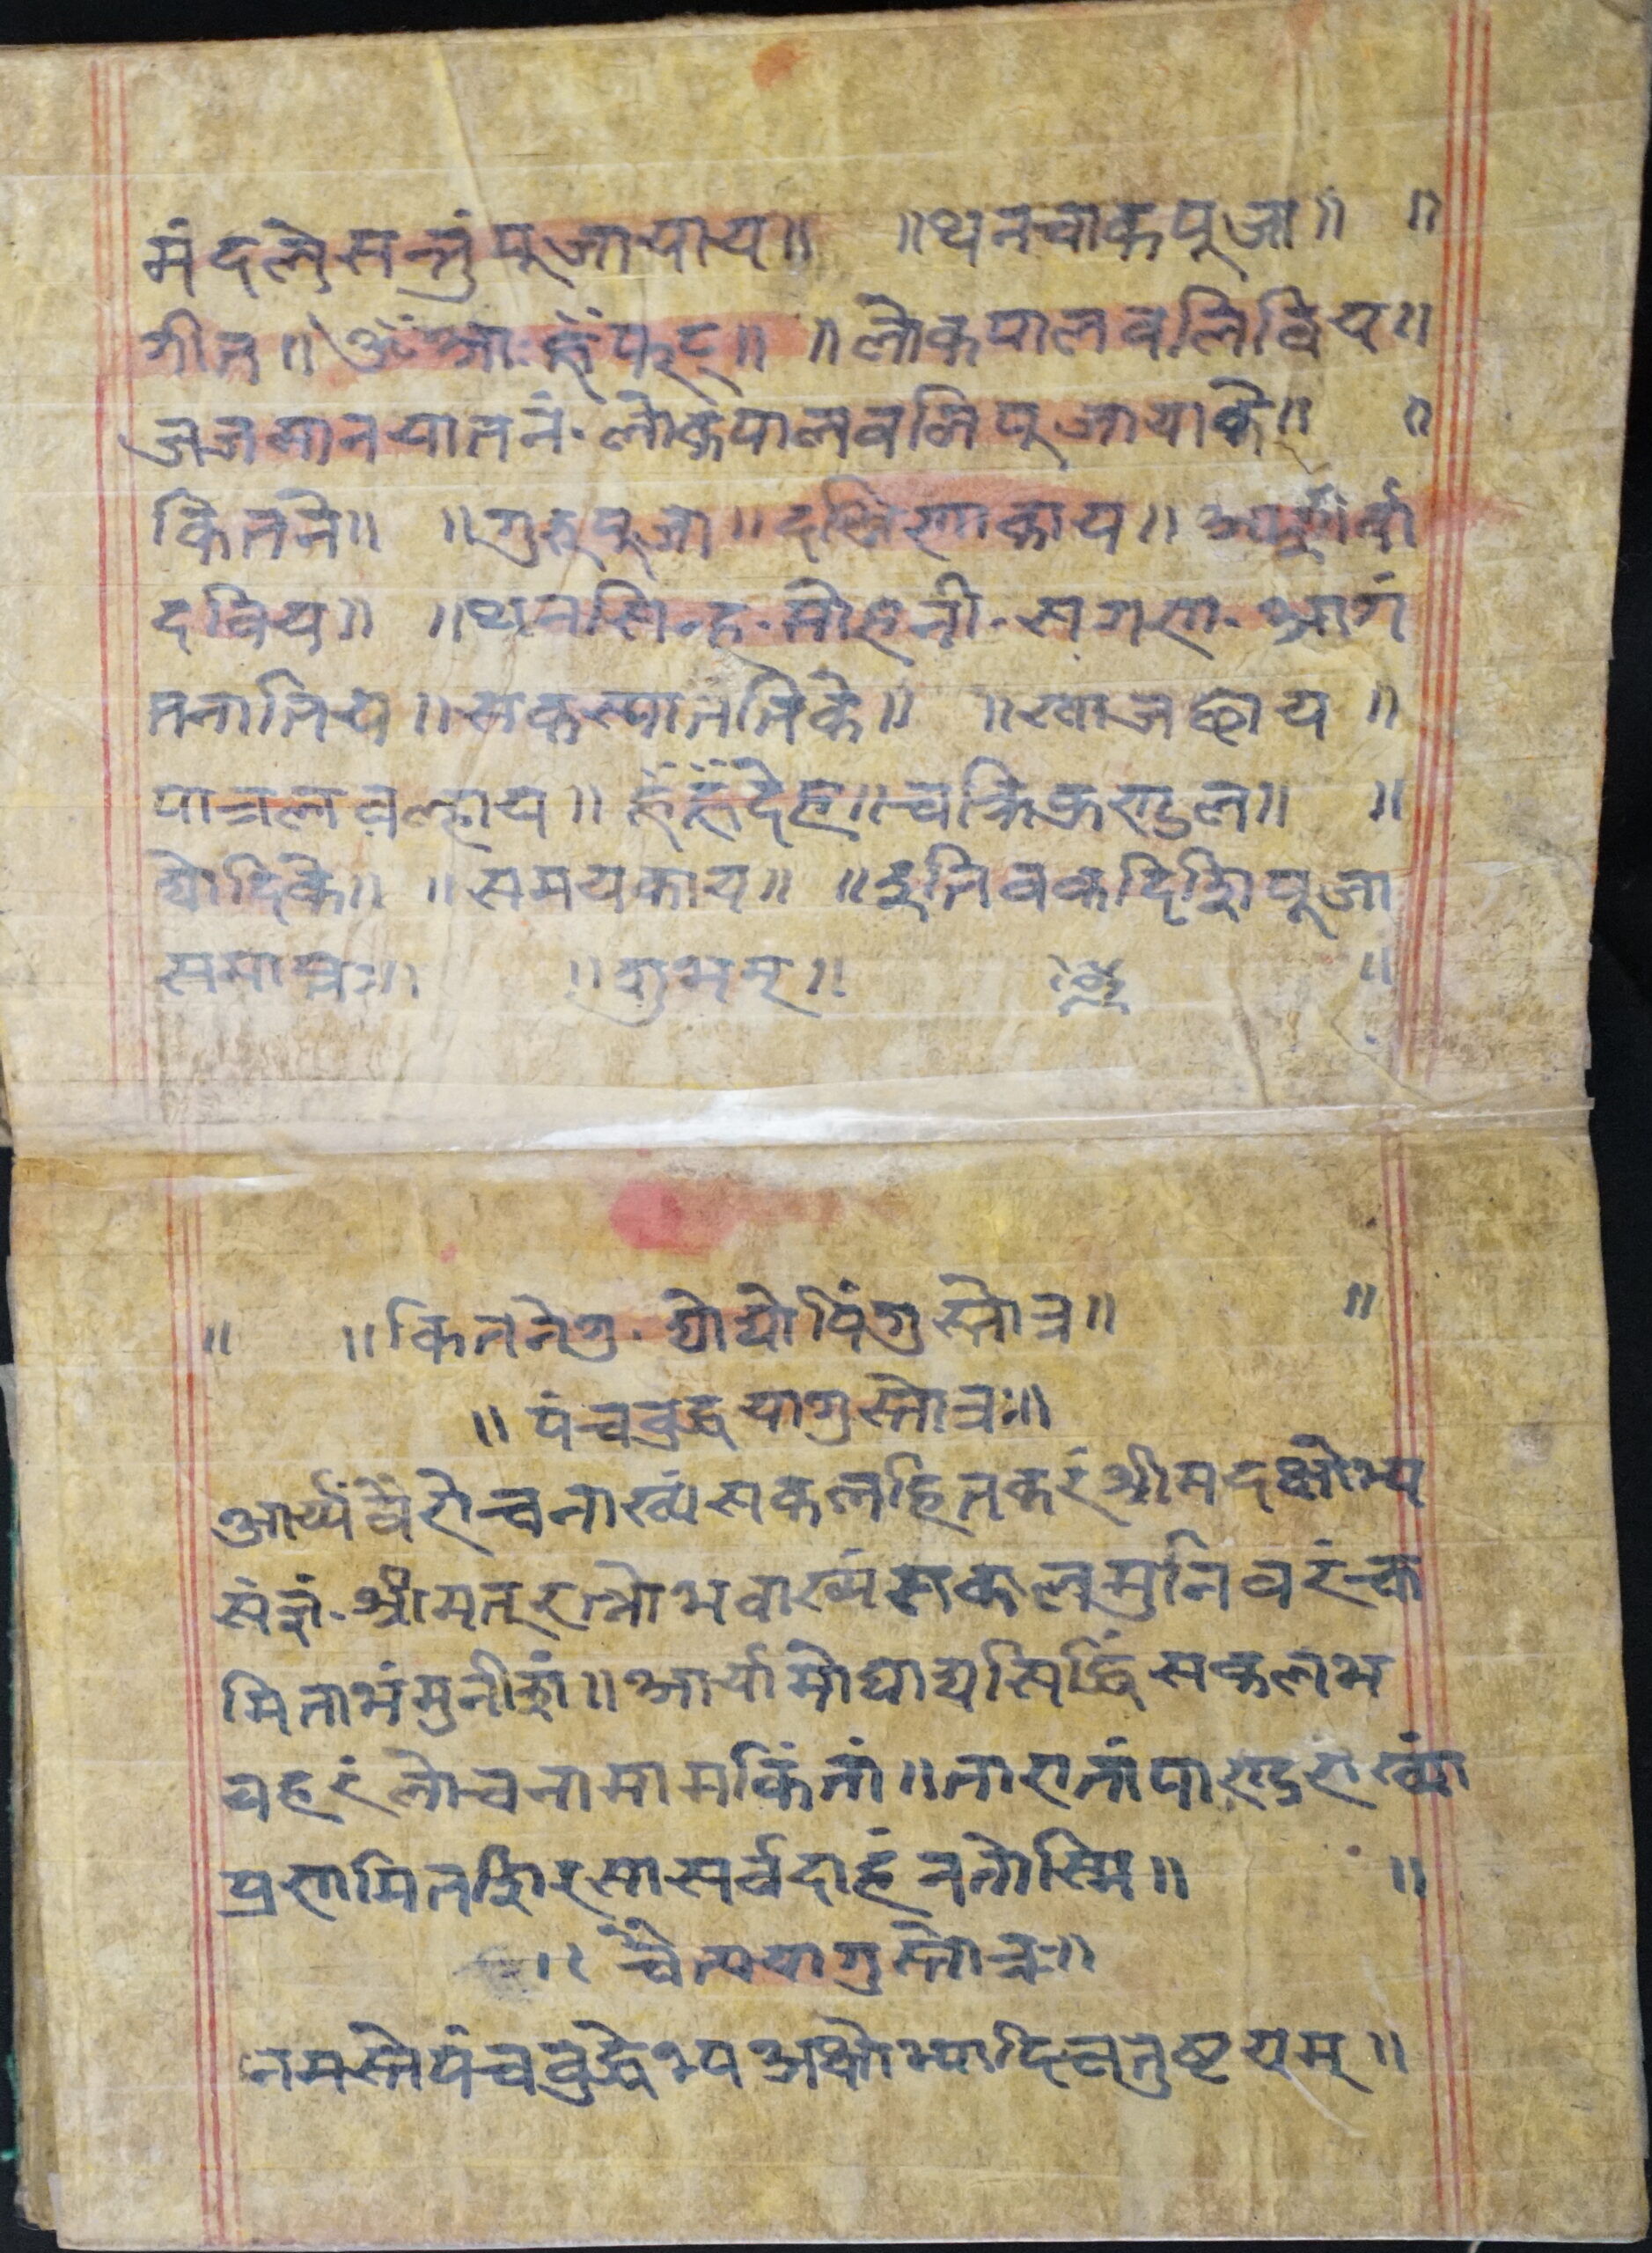 मंदलेसन्तुंपूजायाय॥ ॥थनचाकपूजा॥ ॥
गीत॥ ॐआःहूँफट्॥ ॥लोकपालवलिविय॥
जजमानयातनं॰लोकपालवलिपूजायाके॥ ॥
कितने॥ ॥गुरुपूजा॥दक्षिणाकाय॥
दविय॥ ॥थनसिन्ह॰मोहनी॰सगण॰आगं
तनातिय॥सकस्यातंतिके॥ ॥खाजछाय॥
पात्रलवल्हाय॥ हूँहूँदेह॥चक्रिकुण्डल॥ ॥
द्योदिके॥ ॥समयकाय॥ ॥इतिवकदिशिपूजा
समाप्तः॥ ॥शुभम्॥ ॥
॥ ॥कितनेगु॰द्योद्योपिंगुस्तोत्र॥ ॥
॥पंचबुद्धयागुस्तोत्रः॥
आर्य्यंवैरोचनाख्यंसकलहितकरंश्रीमदक्षोभ्य
संज्ञं॰श्रीमत्‌रत्नोभवाख्यंसकलमुनिवरंचा
मिताभंमुनीशं॥आर्यामोघाद्यसिद्धिंसकलभ
यहरंलोचनामामकिंतां॥तारातांपाण्डराख्यां
प्रणामितशिरसासर्वदाहंनतोस्मि॥ ॥
॥चैत्ययागुस्तोत्रः॥
नमस्तेपंचबुद्धेभ्यअक्षोभ्यादिचतुष्टयम्॥